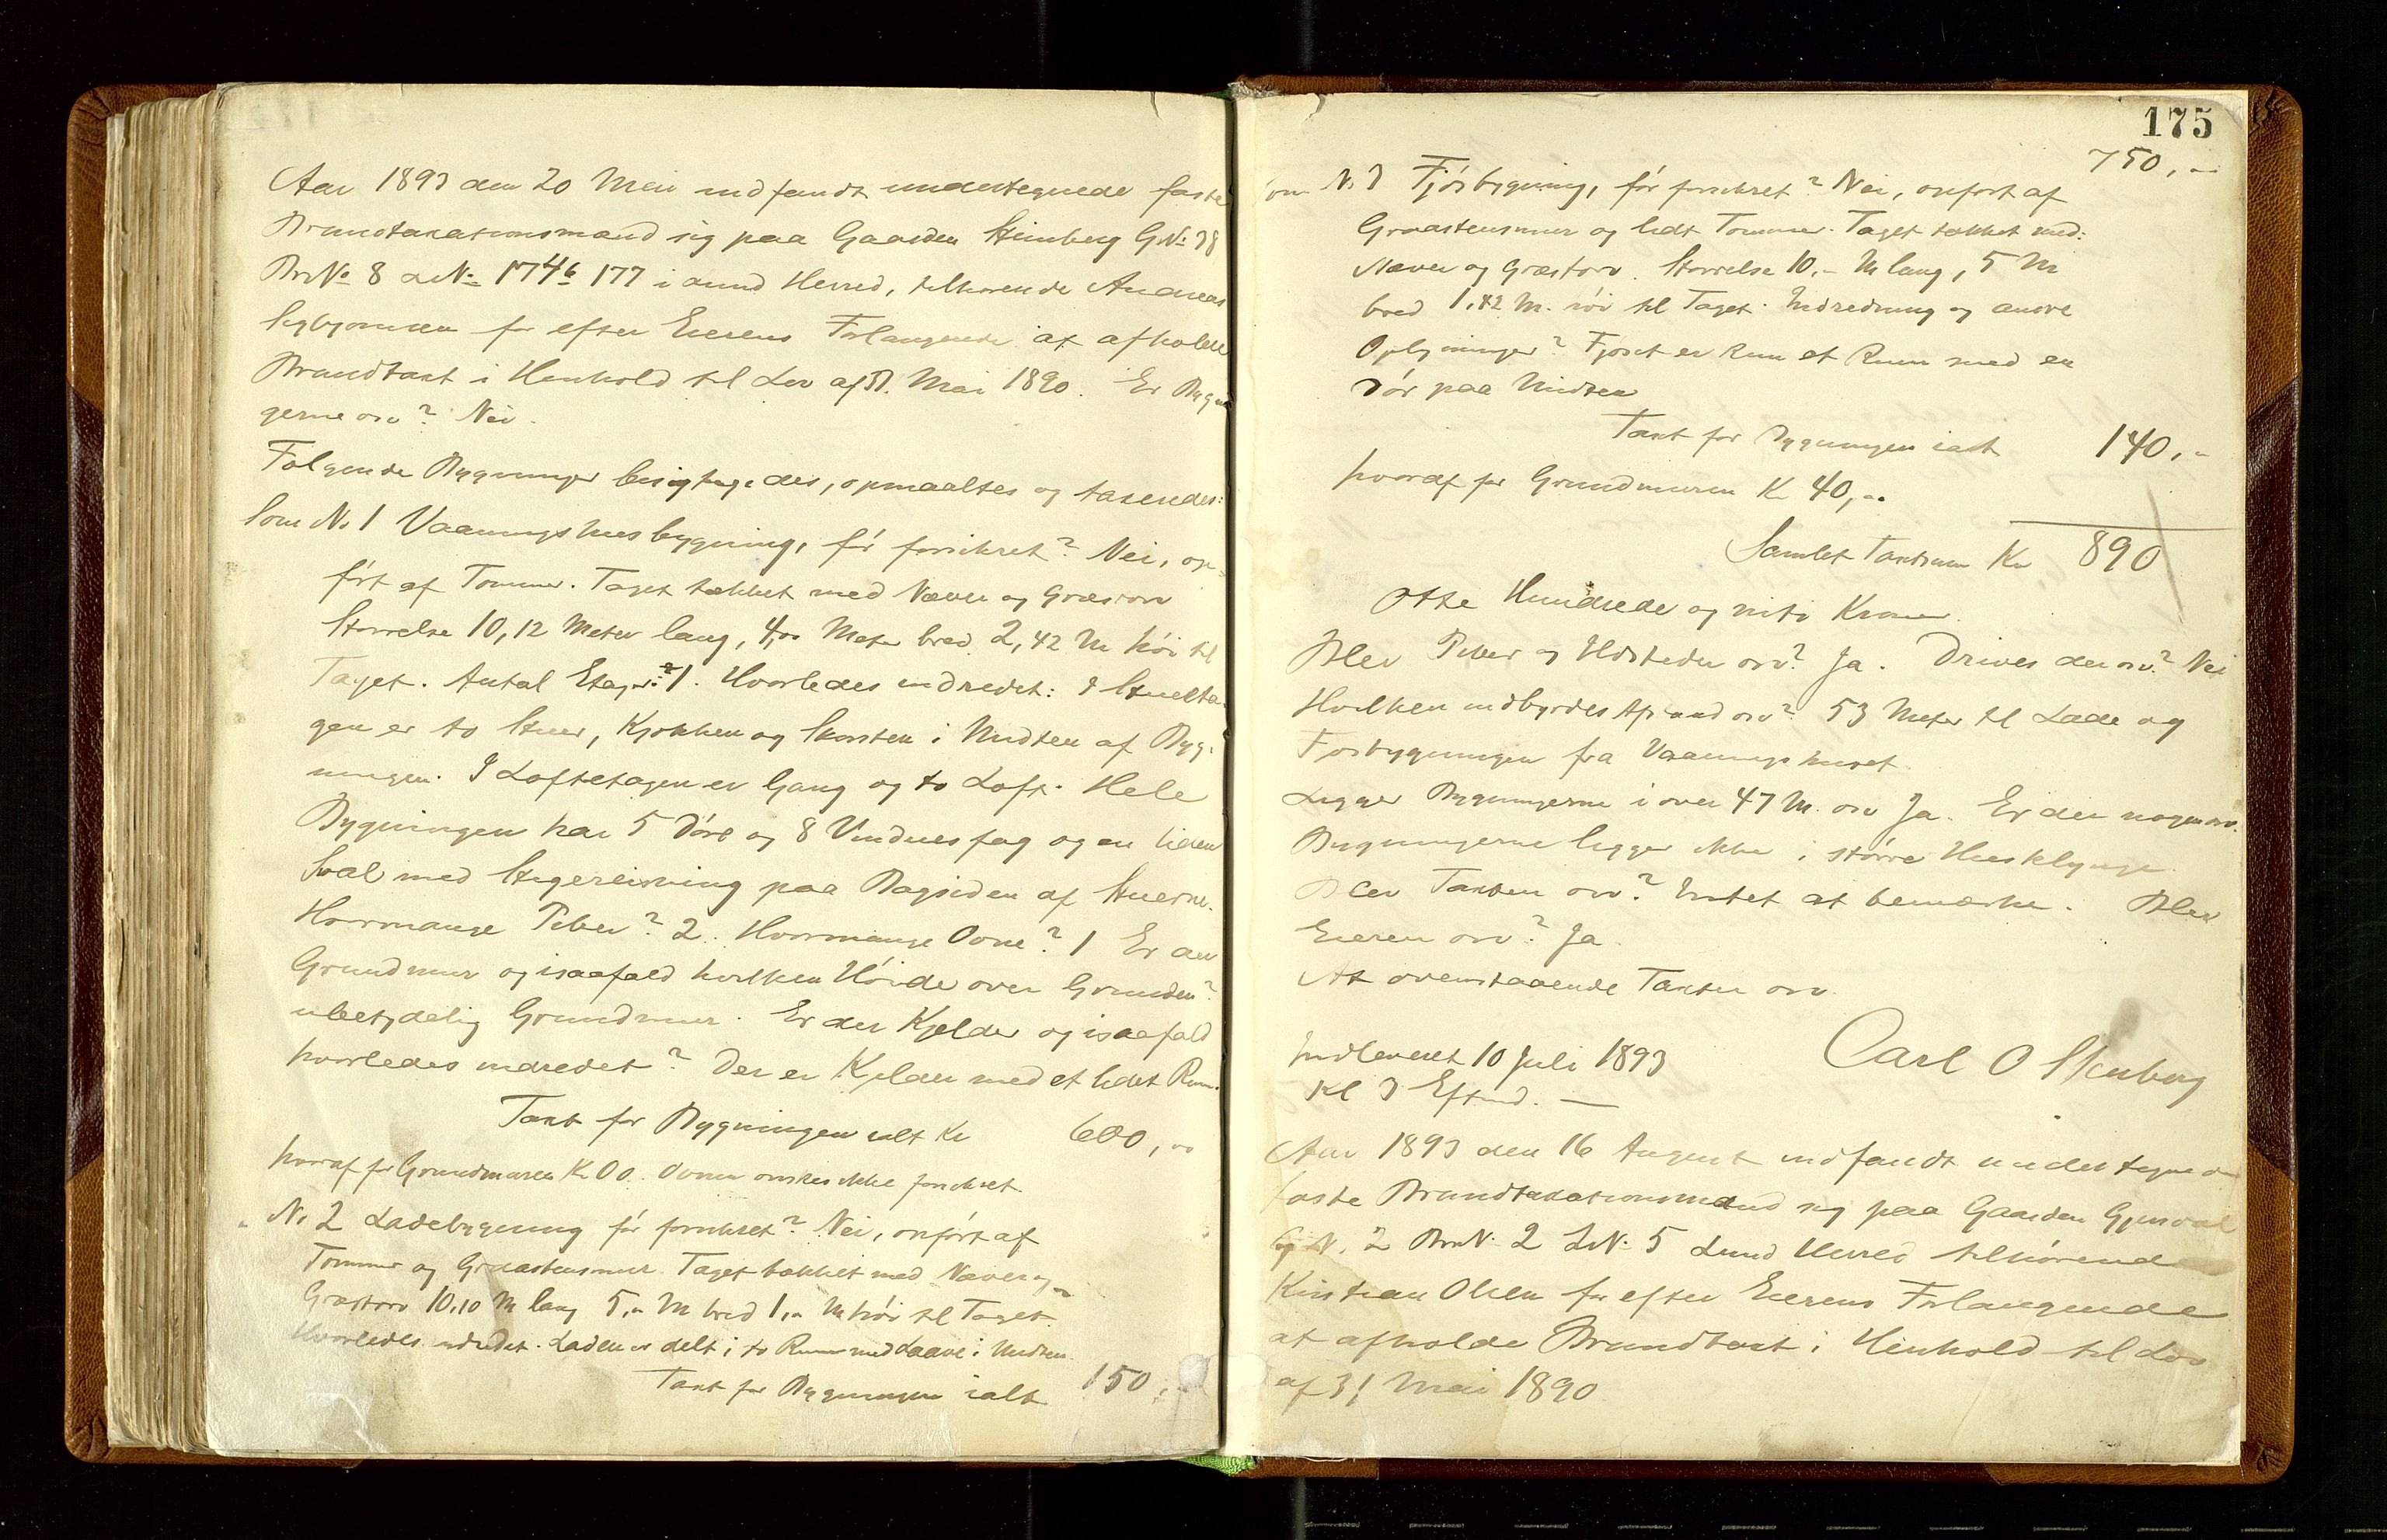 Aar 1893 den 20 Mai indfandt undertegnede faste
Brandtaxationsmænd sig paa Gaarden Steinberg GNo 38
BrNo 8 LNo 174b 177 i Lund Herred, tilhørende Andreas
for efter Eierens Forlangende at afholde
Brandtaxt i Henhold til Lov af 31. Mai 1890. Er Bygnin
gerne osv? Nei.
Følgende Bygninger besigtigedes, opmaaltes og taxeredes:
Som No 1 Vaaningshusbygning, før forsikret? Nei, op-
ført af Tømmer. Taget tækket med Næver og Græstorv
Størrelse 10,12 Meter lang, 4,00 Meter bred 2,42 M høi til
Taget. Antal Etager? 1. Hvorledes indredet: I Stueeta-
gen er to Stuer, Kjøkken og Skorsten i Midten af Byg-
ningen. I Loftetagen er Gang og to Loft. Hele
Bygningen har 5 Døre og 8 Vinduesfag og en liden
Sval med Stegereisning paa Bagsiden af Stuerne.
Hvormange Piber? 2. Hvormange Ovne? 1 Er der
Grundmur og isaafald hvilken Høide over Grunden?
ubetydelig Grundmur. Er der Kjelder og isaafald
hvorledes indredet? Der er Kjelder med et lidet Rum.
Taxt for Bygningen ialt Kr 600,00
hvoraf for Grundmuren Kr 00. Ovnen ønskes ikke forsikret
" No 2 Ladebygning før forsikret? Nei, opført af
Tømmer og Graastensmur. Taget tækket med Næver og
Græstorv 10,10 M lang 5,- M bred 1,- M høi til Taget.
Hvorledes indredet. Laden er delt i to Rum med Laave i Midten.
Taxt for Bygningen ialt 150,-
175
750,-
Som No 3 Fjøsbygning, før forsikret? Nei, opført af
Graastensmur og lidt Tømmer. Taget tækket med:
Næver og Græstorv. Størrelse 10,- M lang, 5 M
bred 1,82 M. høi til Taget. Indredning og andre
Oplysninger? Fjøset er kun et Rum med en
Dør paa Midten
Taxt for Bygningen ialt 140,-
hvoraf for Grundmuren Kr 40,-
Samlet Taxtsum Kr 890
Otte Hundrede og niti Kroner.
Blev Piber og Ildsteder osv? Ja. Drives der osv? Nei
Hvilken indbyrdes Afstand osv? 53 Meter til Lade og
Fjøsbygningen fra Vaaningshuset.
Ligger Bygningerne i over 47 M. osv Ja. Er der nogen osv.
Bygningerne ligger ikke i større Husklynge.
Blev Taxten osv? Intet at bemærke. Blev
Eieren osv? Ja.
At ovenstaaende Taxter osv.
Carl O Stenberg
Indleveret 10 Juli 1893
Kl 3 Eftmd. —
Aar 1893 den 16 August indfandt undertegnede
faste Brandtaxationsmænd sig paa Gaarden
G No 2 BrN. 2 LN. 5 Lund Herred tilhørende
Kristian Olsen for efter Eierens Forlangende
at afholde Brandtaxt i Henhold til Lov
af 31 Mai 1890